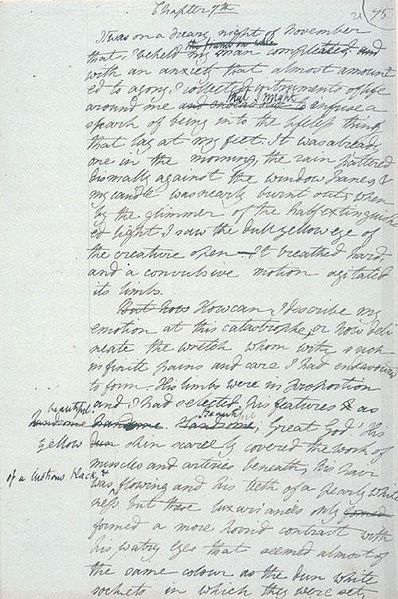 Chapter 7th
21
95
It was on a dreary night of November
the frame on whic
that I beheld my man compleated and
with an anxiety that almost amount
ed to agony I collected instruments of life
that I might
around me and endeavour to infuse a
spark of being into the lifeless thing
that lay at my feet. It was already
one in the morning, the rain pattered
dismally against the window panes &
my candle was nearly burnt out, when
by the glimmer of the half extinguish
ed light I saw the dull yellow eye of
the creature open—It breathed hard,
and a convulsive motion agitated
its limbs.
But how How can I describe my
emotion at this catastrophe, or how deli
neate the wretch whom with such
infinite pains and care I had endeavoured
to form. His limbs were in proportion
and I had selected his features & as
beautiful
handsome handsome Handsome, Great God! His
yellow dun skin scarcely covered the work of
muscles and arteries beneath; his hair
of a lustrous black, &
was flowing and his teeth of a pearly white
ness but these luxuriances only
formed a more horrid contrast with
his watry eyes that seemed almost of
the same colour as the dun white
sockets in which they were set,